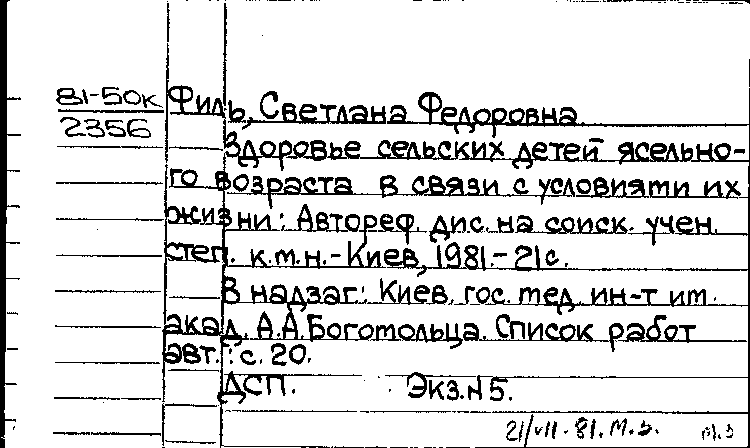 81-50к
2356
Филь, Светлана Федоровна.
Здоровье сельских детей ясельно-
го возраста в связи с условиями их
жизни: Автореф. дис. на соиск. учен.
степ. к.м.н.-Киев, 1981.-21с.
В надзаг.: Киев. гос. мед. ин-т им.
акад. А.А.Богомольца. Список работ
авт.: с. 20.
ДСП. Экз.N5.
21/VII-81.